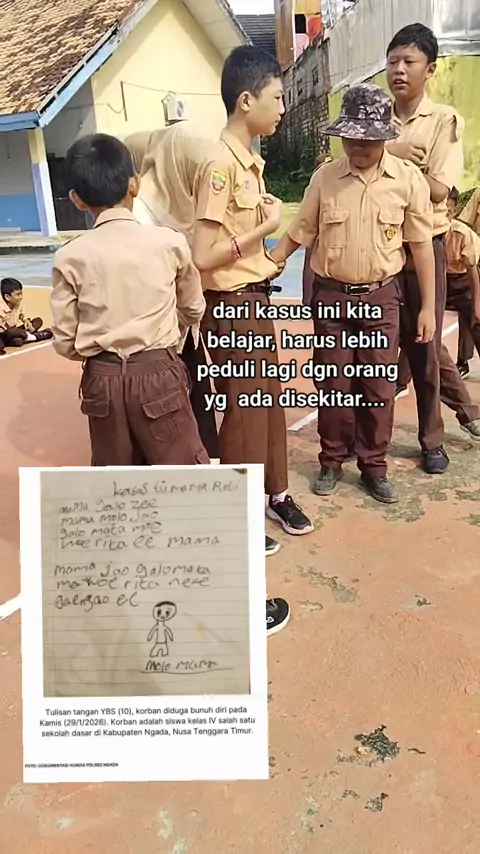 dari kasus ini kita
belajar, harus lebih
peduli lagi dgn orang
yg ada disekitar....
kertas tii mama Reti
mama galo zee
mama molo Jao
galo mata mae
woe rita ee mama
mama Jao galo mata
mae woe rita nee
gae ngao ee
molo mama
Tulisan tangan YBS (10), korban diduga bunuh diri pada
Kamis (29/1/2026). Korban adalah siswa kelas IV salah satu
sekolah dasar di Kabupaten Ngada, Nusa Tenggara Timur.
FOTO: DOKUMENTASI HUMAS POLRES NGADA